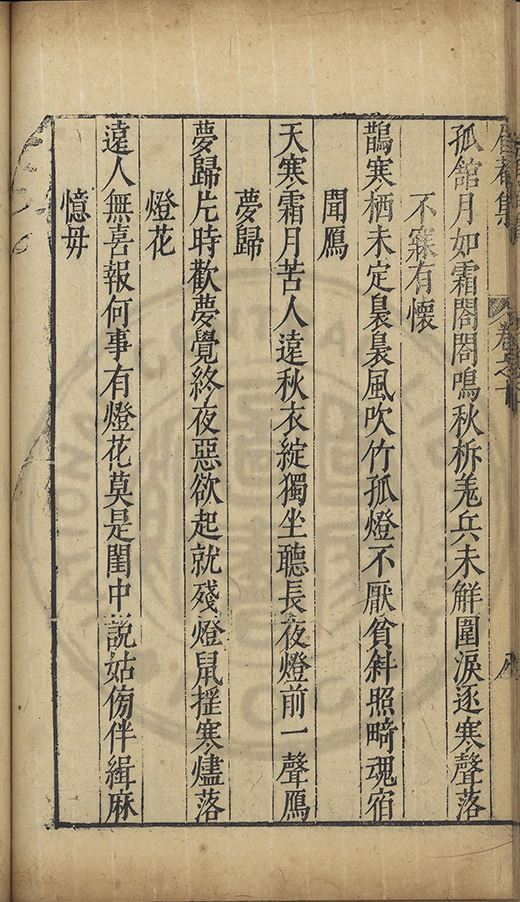 孤舘月如霜閤閤鳴秋柝羗兵未觧圍淚逐寒聲落
不寐有懷
鵲寒栖未定裊裊風吹竹孤燈不厭貧斜照畸魂宿
聞鴈
天寒霜月苦人遠秋衣綻獨坐聽長夜燈前一聲鴈
夢歸
夢歸片時歡夢覺終夜惡欲起就殘燈鼠揺寒燼落
燈花
遠人無喜報何事有燈花莫是閨中說姑傍伴緝麻
憶毋